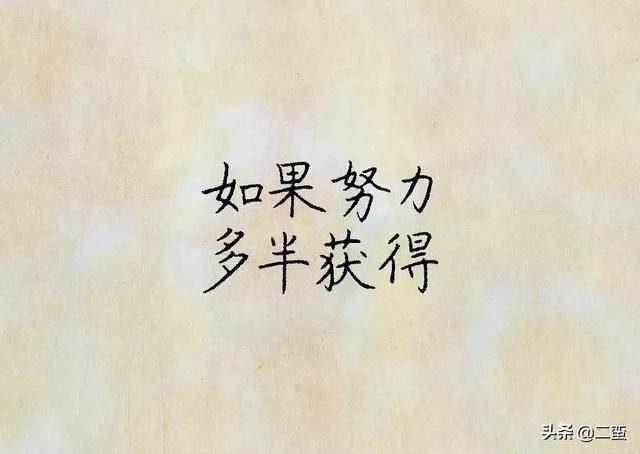 如果努力
多半获得
头条 @二蛮